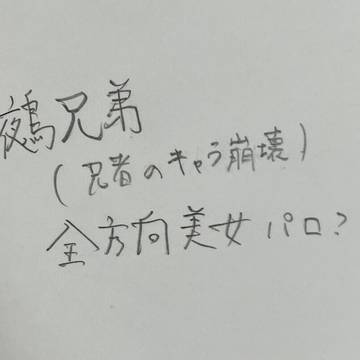 鵺兄弟
(兄者のキャラ崩壊)
全方向美女パロ?